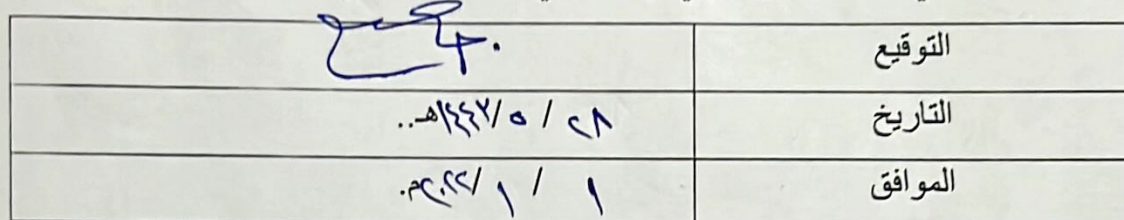 التوقيع
التاريخ ٢٨ / ٥ /١٤٤٣هـ..
الموافق ١ / ١ /٢٠٢٢م.